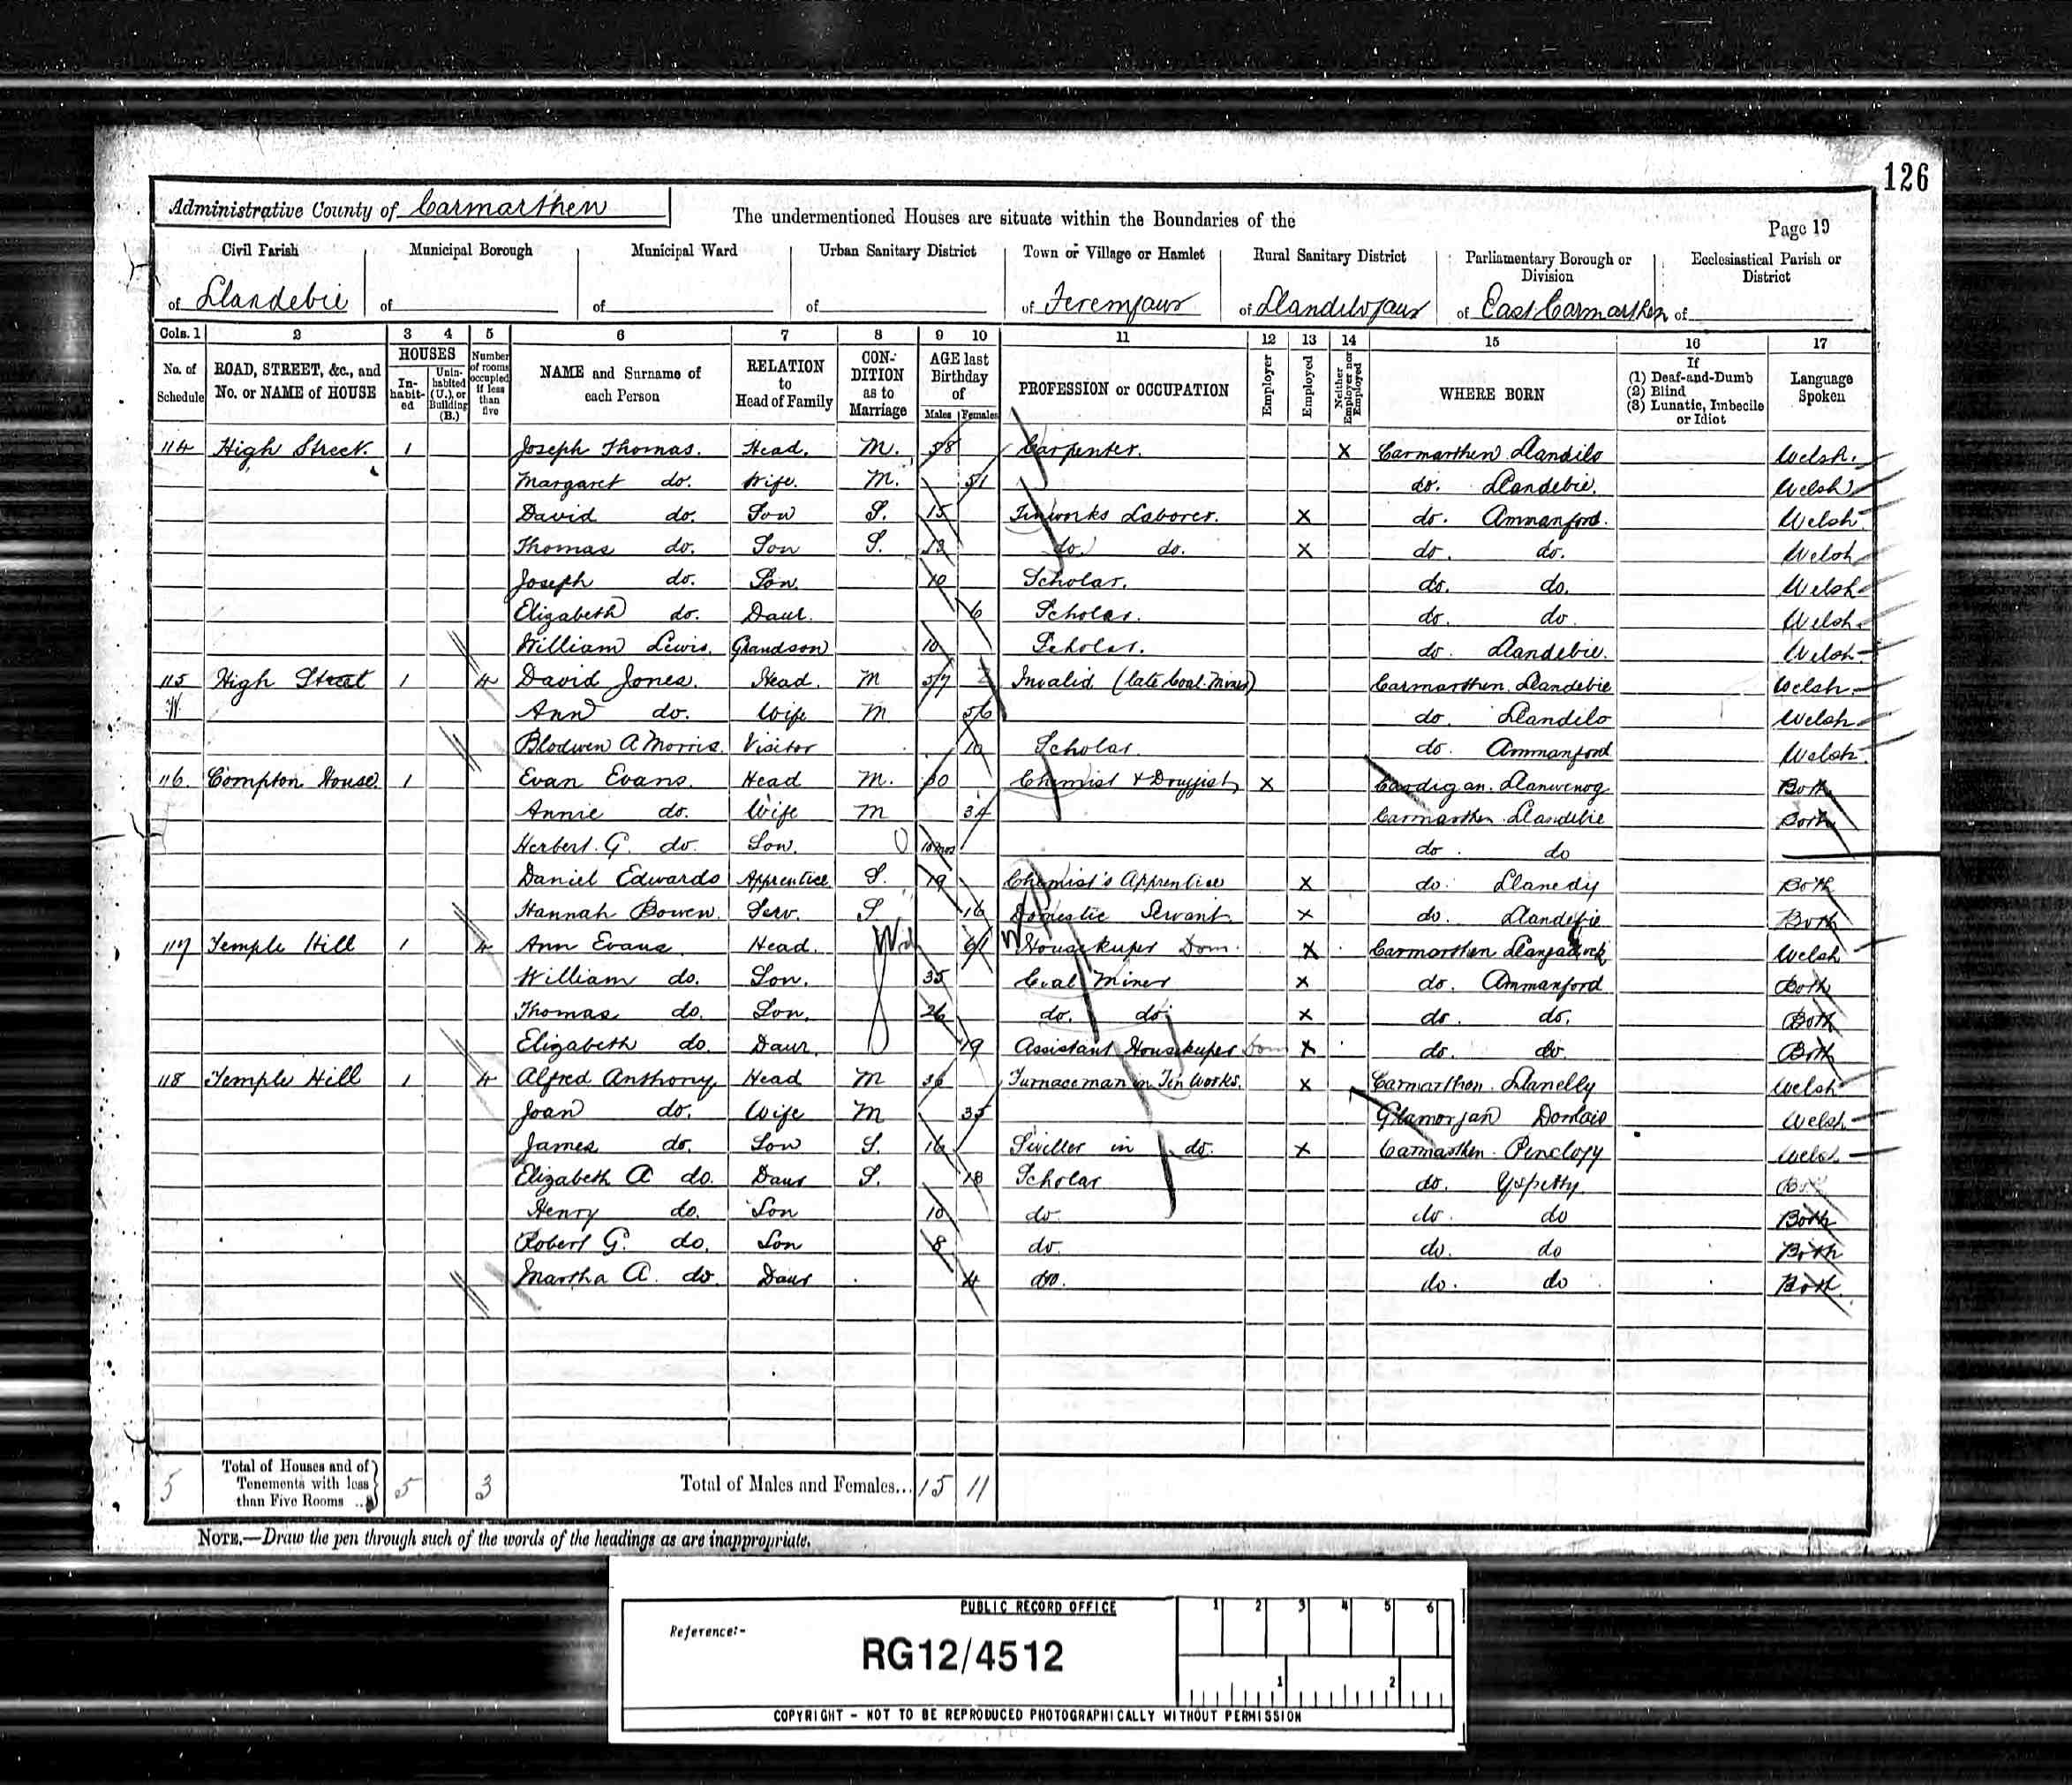 126
Administrative County of Carmarthen
The undermentioned Houses are situate within the Boundaries of the
Page 19
Civil Parish Municipal Borough Municipal Ward Urban Sanitary District Town or Village or Hamlet Rural Sanitary District Parliamentary Borough or Division Ecclesiastical Parish or District
of Llandebie of of of of of Llandilofawr of East Carmarthen of
Cols. 1 2 3 4 5 6 7 8 9 10 11 12 13 14 15 16 17
No. of Schedule ROAD, STREET, &c., and No. or NAME of HOUSE HOUSES In-habit-ed Unin-habited (U.), or Building (B.) Number of rooms occupied if less than five NAME and Surname of each Person RELATION to Head of Family CON-DITION as to Marriage AGE last Birthday of Males Females PROFESSION or OCCUPATION Employer Employed Neither Employer nor Employed WHERE BORN If (1) Deaf-and-Dumb (2) Blind (3) Lunatic, Imbecile or Idiot Language Spoken
114 High Street. 1 Joseph Thomas. Head. M. 58 Carpenter. X Carmarthen Llandilo Welsh.
Margaret do. Wife. M. 51 do. Llandebie. Welsh
David do. Son S. 15 Tinworks Laborer. X do. Ammanford. Welsh
Thomas do. Son S. 13 do. do. X do. do. Welsh
Joseph do. Son. 10 Scholar. do. do. Welsh
Elizabeth do. Daur. 6 Scholar. do. do Welsh
William Lewis. Grandson 10 Scholar. do. Llandebie. Welsh
115 High Street 1 4 David Jones. Head. M 57 Invalid (late Coal Miner) Carmarthen. Llandebie Welsh.
Ann do. Wife M 56 do. Llandilo Welsh
Blodwen A Morris. Visitor 10 Scholar. do. Ammanford Welsh
116. Compton House. 1 Evan Evans. Head M. 30 Chemist & Druggist X Cardigan. Llanwenog Both
Annie do. Wife M 34 Carmarthen Llandebie Both
Herbert. G. do. Son. 10 mos do. do
Daniel Edwards Apprentice S. 19 Chemist's Apprentice X do. Llanedy Both
Hannah Bowen. Serv. S 16 Domestic Servant. X do. Llandebie Both
117 Temple Hill 1 4 Ann Evans. Head. Wid 61 Housekeeper Dom. X Carmarthen Llangadock Welsh
William do. Son. 35 Coal Miner X do. Ammanford Both
Thomas do. Son. 26 do. do. X do. do. Both
Elizabeth do. Daur. 19 Assistant Housekeeper Dom X do. do. Both
118 Temple Hill 1 4 Alfred Anthony. Head M 36 Furnaceman in Tin Works. X Carmarthen. Llanelly Welsh
Joan do. Wife M 35 Glamorgan Dowlais Welsh
James do. Son S. 16 in do. X Carmarthen. Welsh
Elizabeth A do. Daur S. 13 Scholar do. Yspitty.
Henry do. Son 10 do. do. do Both
Robert G. do. Son 8 do. do. do Both
Martha A. do. Daur 4 do. do. do Both
5 Total of Houses and of Tenements with less than Five Rooms 5 3 Total of Males and Females... 15 11
NOTE.—Draw the pen through such of the words of the headings as are inappropriate.
PUBLIC RECORD OFFICE
1 2 3 4 5 6
Reference:-
RG12/4512
1 2
COPYRIGHT - NOT TO BE REPRODUCED PHOTOGRAPHICALLY WITHOUT PERMISSION